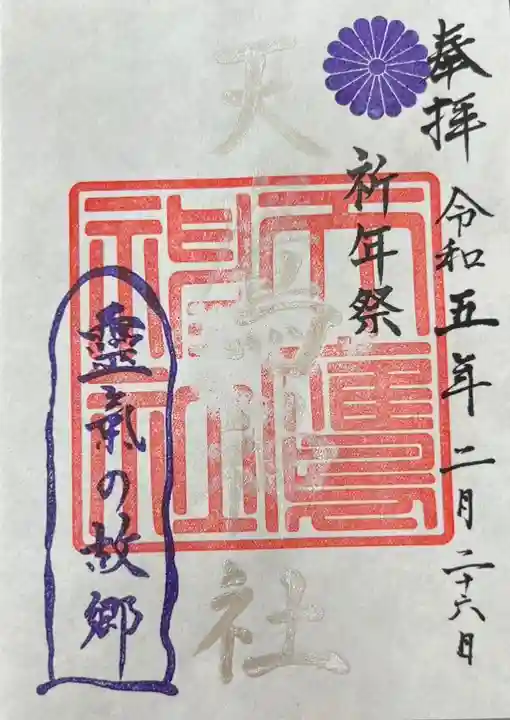 奉拝 令和五年二月二十六日
祈年祭
天鷹神社
靈氣の故郷